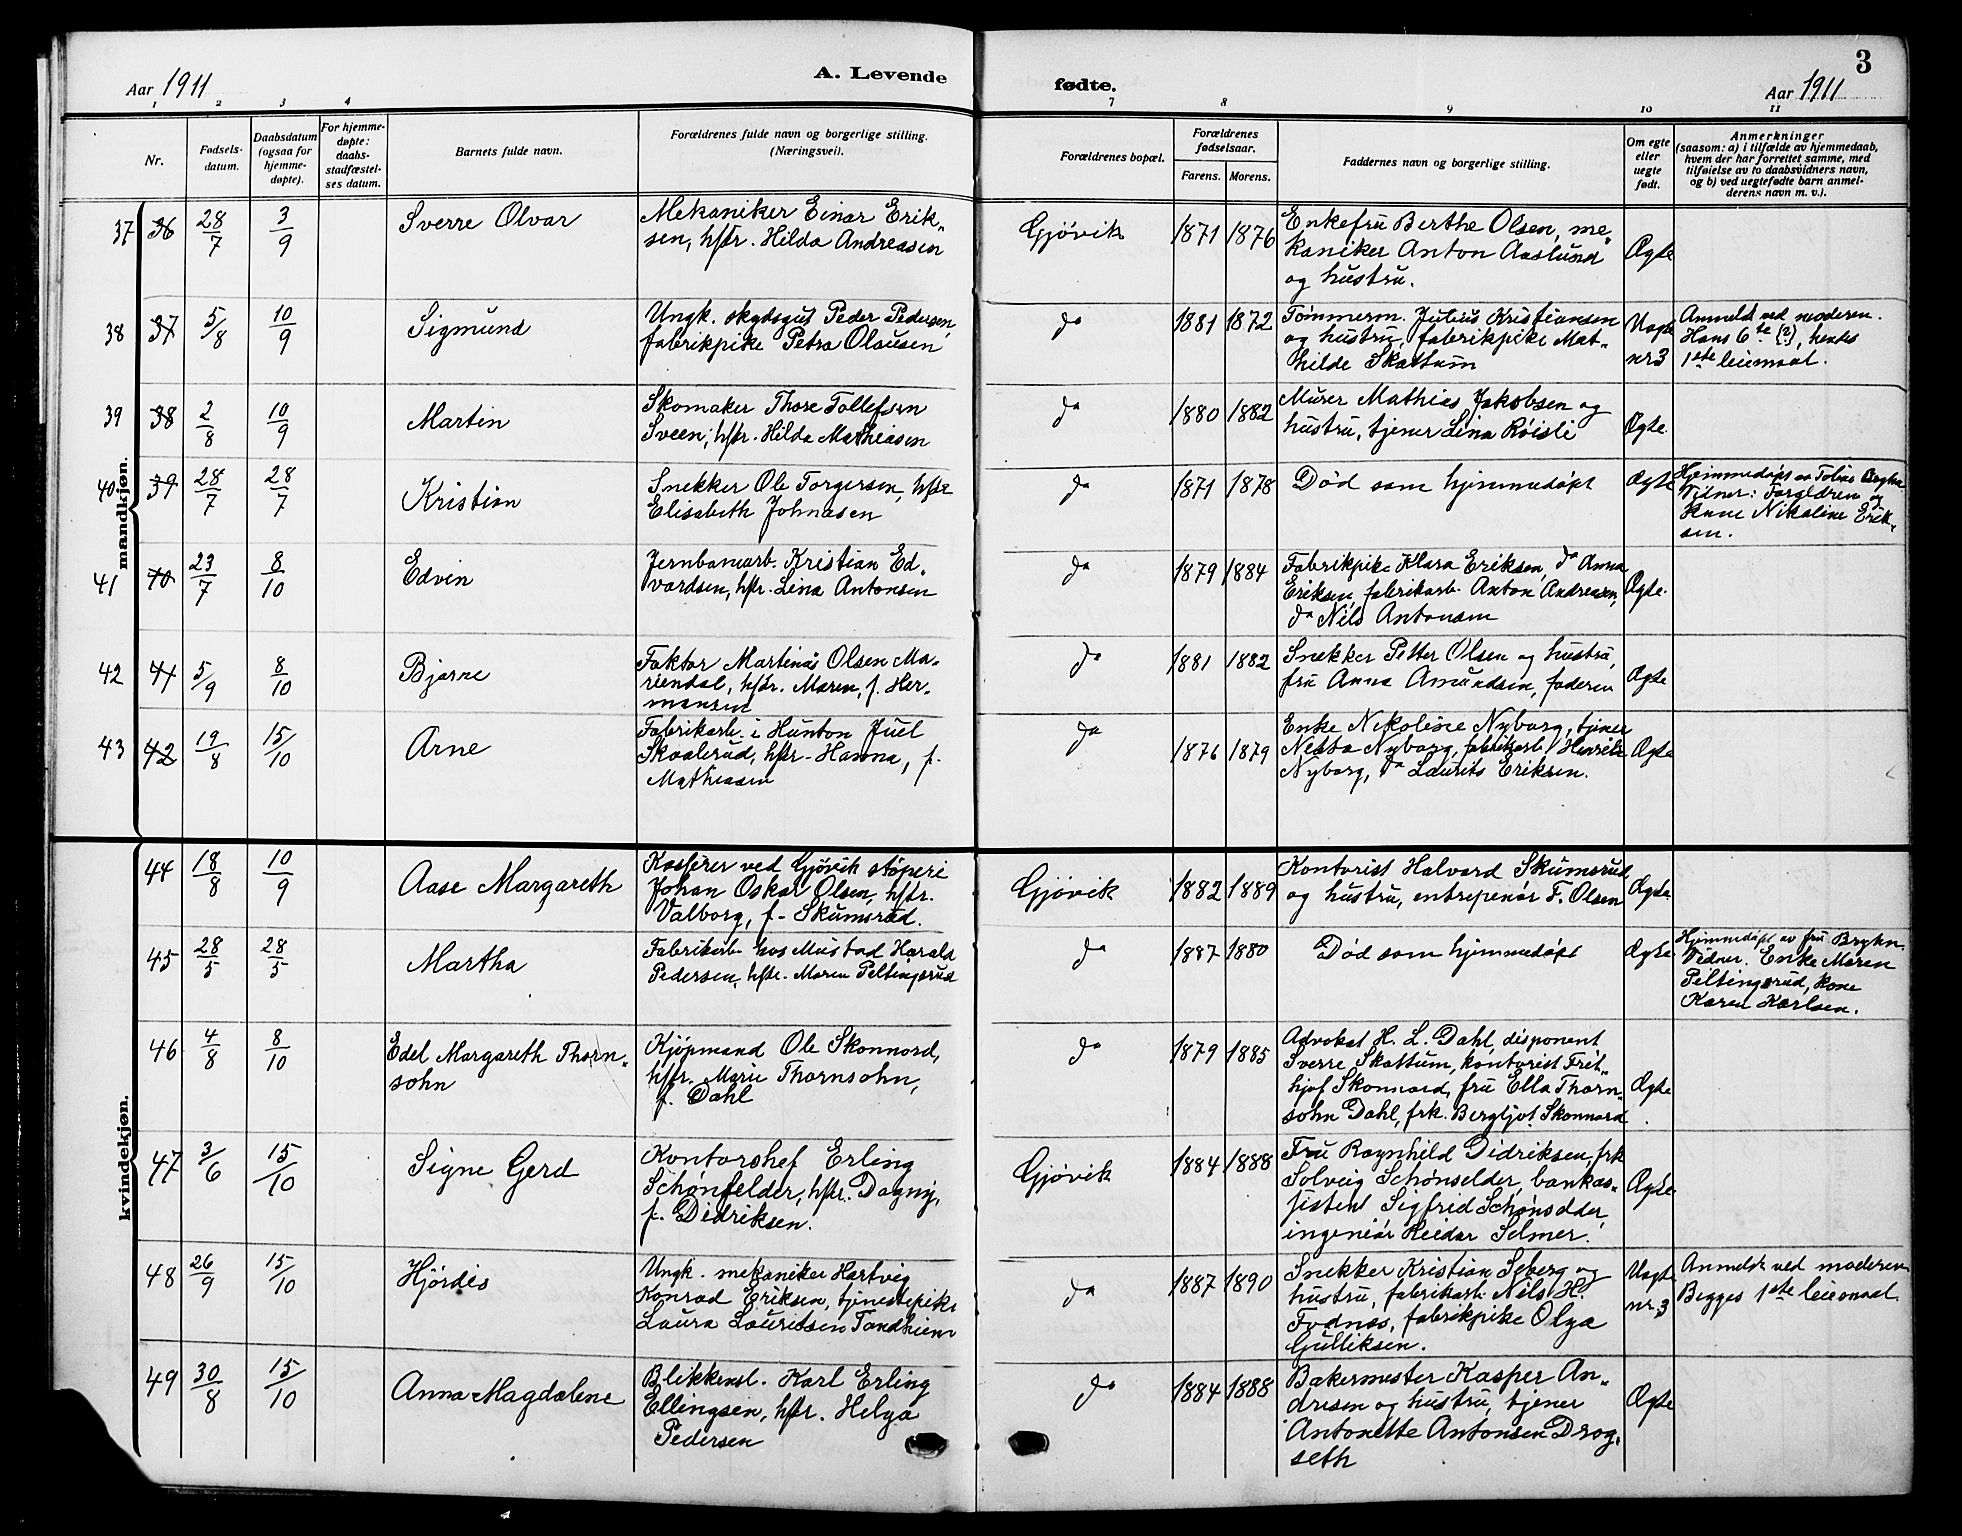 3
Aar 1911
A. Levende
fødte.
Aar 1911
1 2 3 4 7 8 9 10 11
Nr.
Fødsels-
datum.
Daabsdatum
(ogsaa for
hjemme-
døpte).
For hjemme-
døpte:
daabs-
stadfæstel-
ses datum.
Barnets fulde navn.
Forældrenes fulde navn og borgerlige stilling.
(Næringsvei).
Forældrenes bopæl.
Forældrenes
fødselsaar.
Farens. Morens.
Faddernes navn og borgerlige stilling.
Om egte
eller
uegte
født.
Anmerkninger
(saasom: a) i tilfælde av hjemmedaab,
hvem der har forrettet samme, med
tilføielse av to daabsvidners navn,
og b) ved uegtefødte barn anmel-
derens navn m. v.).
mandkjøn.
37 36 28/7 3/9 Sverre Olvar
Mekaniker Einar Erik-
sen, hstr. Hilda Andreasen
Gjøvik 1871 1876
Enkefru Berthe Olsen, me-
kaniker Anton Aaslund
og hustru.
Ægte
38 37 5/8 10/9 Sigmund
Ungk. skydsgut Peder Pedersen,
fabrikpike Petra Olausen
da 1881 1872
Tömmerm. Julius Kristiansen
og hustru, fabrikpike Mat-
hilde Skattum
Uegte
nr 3
Anmeldt ved moderen.
Hans 6te (?), hendes
1ste leiemaal.
39 38 2/8 10/9 Martin
Skomaker Thore Tollefsen
Sveen, hstr. Hilda Mathiasen
da 1880 1882
Murer Mathias Jakobsen og
hustru, tjener Lina Röisli
Ægte
40 39 28/7 28/7 Kristian
Snekker Ole Torgersen, hstr.
Elisabeth Johnasen
da 1871 1878
Død som hjemmedøpt
Ægte
Hjemmedøpt av Tobias
Vidner: Forældren og
Kone Nikoline Erik-
sen.
41 40 23/7 8/10 Edvin
Jernbanearb. Kristian Ed-
vardsen, hstr. Lina Antonsen
da 1879 1884
Fabrikpike Klara Eriksen, da Anna
Eriksen, fabrikarb. Anton Andreasen,
da Nils Antonsen
Ægte.
42 41 5/9 8/10 Bjarne
Faktor Martinus Olsen Ma-
riendal, hstr. Maren, f. Her-
mansen
da 1881 1882
Snekker Petter Olsen og hustru,
fru Anna Amundsen, faderen
Ægte
43 42 19/8 15/10 Arne
Fabrikarb. i Hunton Juel
Skaalerud, hstr. Hanna, f.
Mathiasen
da 1876 1879
Enke Nikoline Nyborg, tjener
Netta Nyborg, fabrikarb. Henrik
Nyborg, da Laurits Eriksen.
Ægte
kvindekjøn.
44 18/8 10/9 Aase Margareth
Kasserer ved Gjøvik støperi
Johan Oskar Olsen, hstr.
Valborg, f. Skumsrud.
Gjøvik 1882 1889
Kontorist Halvard Skumsrud
og hustru, entrepenør F. Olsen
Ægte
45 28/5 28/5 Martha
Fabrikarb. hos Mustad Harald
Pedersen, hstr. Maren Peltingsrud
da 1887 1880
Død som hjemmedøpt
Ægte
Hjemmedøpt av fru Bryhn.
Vidner. Enke Maren
Peltingsrud, kone
Karen Karlsen.
46 4/8 8/10 Edel Margareth Thorn-
sohn
Kjøpmand Ole Skonnord,
hstr. Marie Thornsohn,
f. Dahl
da 1879 1885
Advokat H. L. Dahl, disponent
Sverre Skattum, kontorist Frit-
hjof Skonnord, fru Ella Thorn-
sohn Dahl, frk. Bergljot Skonnord.
Ægte
47 3/6 15/10 Signe Gerd
Kontorchef Erling
Schönfelder, hstr. Dagny,
f. Didriksen.
Gjøvik 1884 1888
Fru Ragnhild Didriksen, frk
Solveig Schönfelder, bankas-
sistent Sigfrid Schönfelder,
ingeniør Heidar Selmer.
Ægte
48 26/9 15/10 Hjördis
Ungk. mekaniker Hartvig
Konrad Eriksen, tjenestepike
Laura Lauritsen Tandhiem
da 1887 1890
Snekker Kristian Seberg og
hustru, fabrikarb. Nils H.
Fodnas, fabrikpike Olga
Gulliksen.
Uegte
nr. 3
Anmeldt ved moderen
Begges 1ste leiemaal
49 30/8 15/10 Anna Magdalene
Blikkensl. Karl Erling
Ellingsen, hstr. Helga
Pedersen
da 1884 1888
Bakermester Kasper An-
dresen og hustru, tjener
Antonette Antonsen Drog-
seth
Ægte